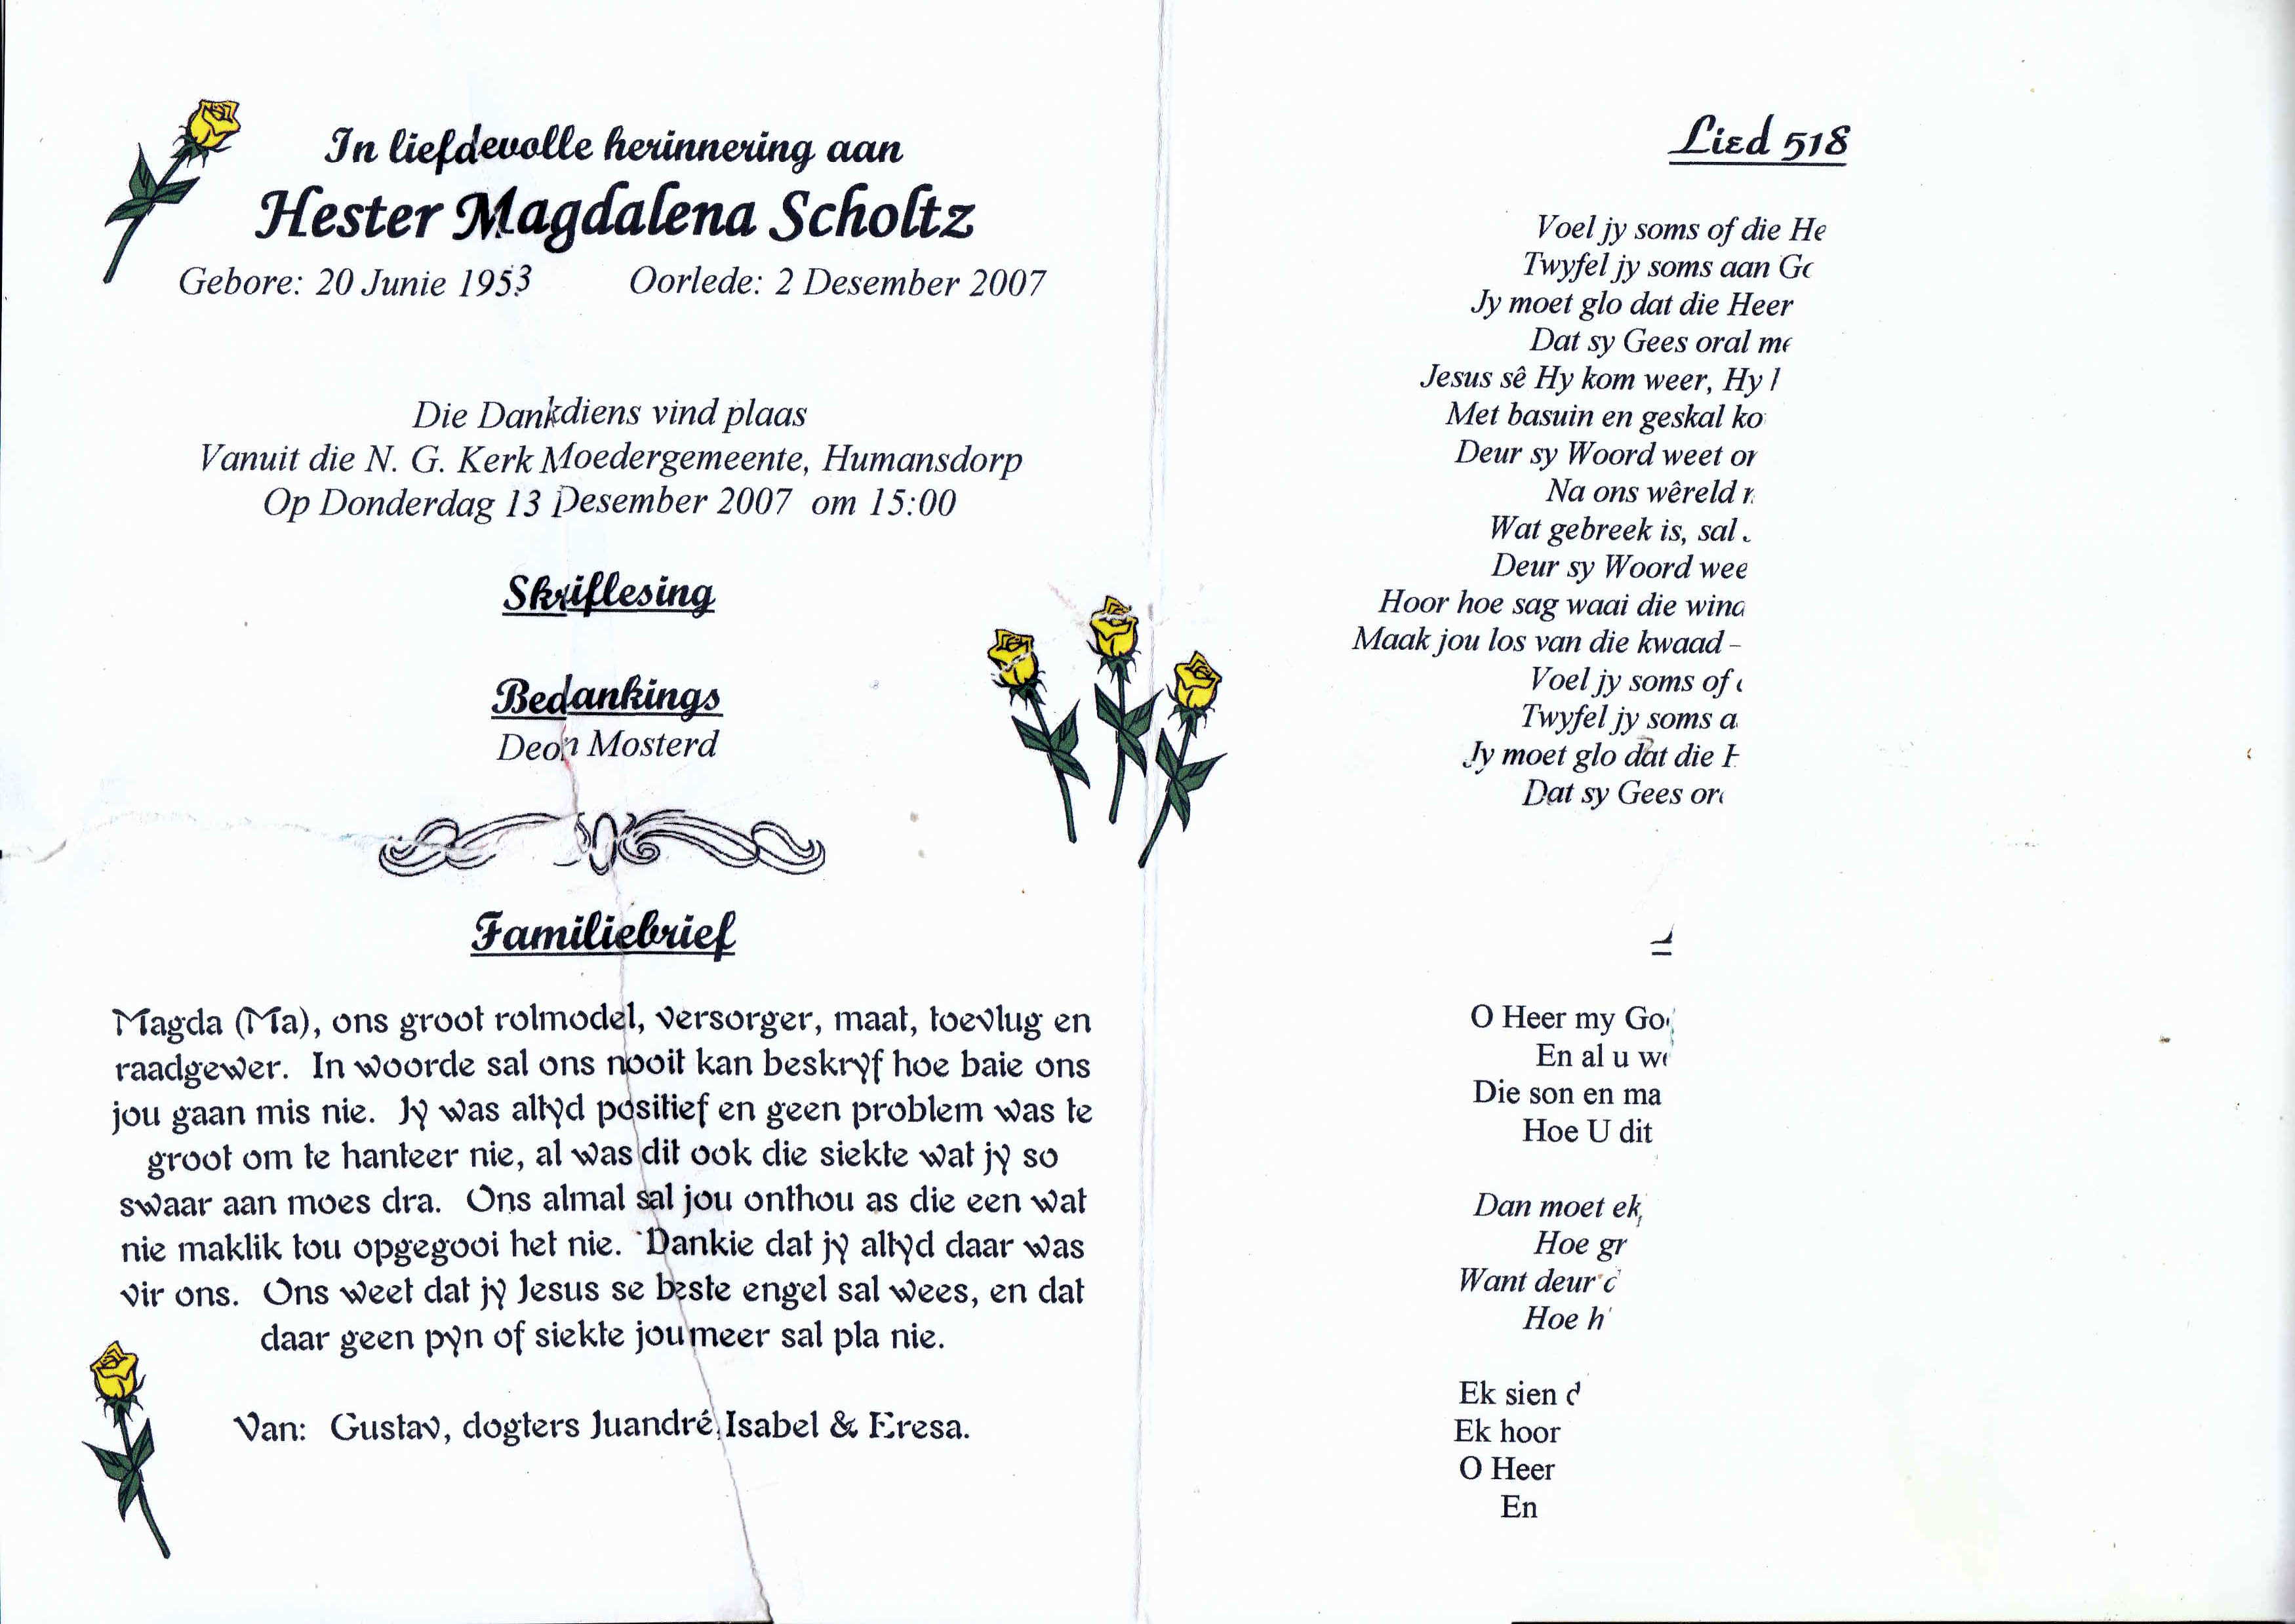 In liefdevolle herinnering aan
Hester Magdalena Scholtz
Gebore: 20 Junie 1953 Oorlede: 2 Desember 2007
Die Dankdiens vind plaas
Vanuit die N. G. Kerk Moedergemeente, Humansdorp
Op Donderdag 13 Desember 2007 om 15:00
Skriflesing
Bedankings
Deon Mosterd
Familiebrief
Magda (Ma), ons groot rolmodel, versorger, maat, toevlug en
raadgewer. In woorde sal ons nooit kan beskryf hoe baie ons
jou gaan mis nie. Jy was altyd positief en geen problem was te
groot om te hanteer nie, al was dit ook die siekte wat jy so
swaar aan moes dra. Ons almal sal jou onthou as die een wat
nie maklik tou opgegooi het nie. Dankie dat jy altyd daar was
vir ons. Ons weet dat jy Jesus se beste engel sal wees, en dat
daar geen pyn of siekte jou meer sal pla nie.
Van: Gustav, dogters Juandré, Isabel & Eresa.
Lied 518
Voel jy soms of die
Twyfel jy soms aan
Jy moet glo dat die Heer
Dat sy Gees oral
Jesus sê Hy kom weer, Hy
Met basuin en geskal
Deur sy Woord weet
Na ons wêreld
Wat gebreek is, sal
Deur sy Woord
Hoor hoe sag waai die
Maak jou los van die kwaad –
Voel jy soms of
Twyfel jy soms
Jy moet glo dat die
Dat sy Gees
O Heer my
En al u
Die son en
Hoe U dit
Dan moet ek
Hoe
Want deur
Hoe
Ek sien
Ek hoor
O Heer
En